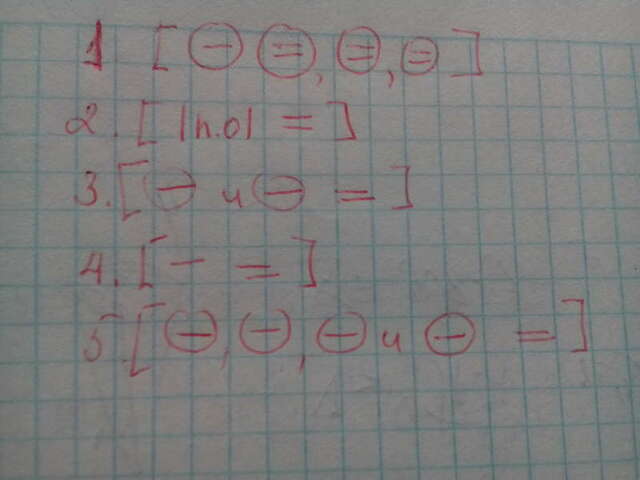 1 [ ⊖ ⊜, ⊜, ⊜ ]
2. [ |п.о| = ]
3. [ ⊖ и ⊖ = ]
4. [ – = ]
5 [ ⊖, ⊖, ⊖ и ⊖ = ]